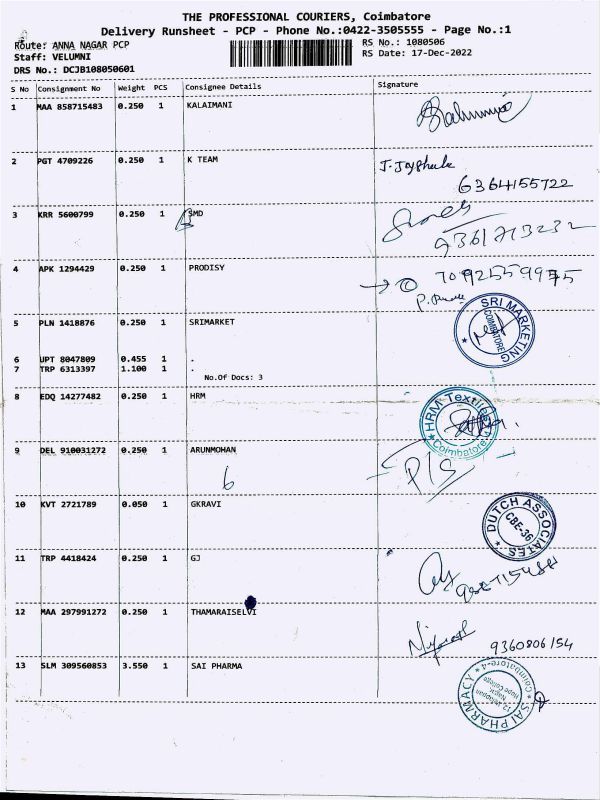 THE PROFESSIONAL COURIERS, Coimbatore
Delivery Runsheet - PCP - Phone No.:0422-3505555 - Page No.:1
Route: ANNA NAGAR PCP
RS No.: 1080506
Staff: VELUMNI
RS Date: 17-Dec-2022
DRS No.: DCJB108050601
S No Consignment No Weight PCS Consignee Details Signature
1 MAA 858715483 0.250 1 KALAIMANI
2 PGT 4709226 0.250 1 K TEAM
6364155722
3 KRR 5600799 0.250 1 SMD
9361713232
4 APK 1294429 0.250 1 PRODISY
5 PLN 1418876 0.250 1 SRIMARKET
SRI MARKETING
COIMBATORE
6 UPT 8047809 0.455 1 .
7 TRP 6313397 1.100 1 .
No.Of Docs: 3
8 EDQ 14277482 0.250 1 HRM
HRM Textiles
Coimbatore
9 DEL 910031272 0.250 1 ARUNMOHAN
6
P/S
10 KVT 2721789 0.050 1 GKRAVI
DUTCH ASSOCIATES
CBE-36
11 TRP 4418424 0.250 1 GJ
12 MAA 297991272 0.250 1 THAMARAISELVI
9360806154
13 SLM 309560853 3.550 1 SAI PHARMA
SAI PHARMACY
Coimbatore-4
Hope College